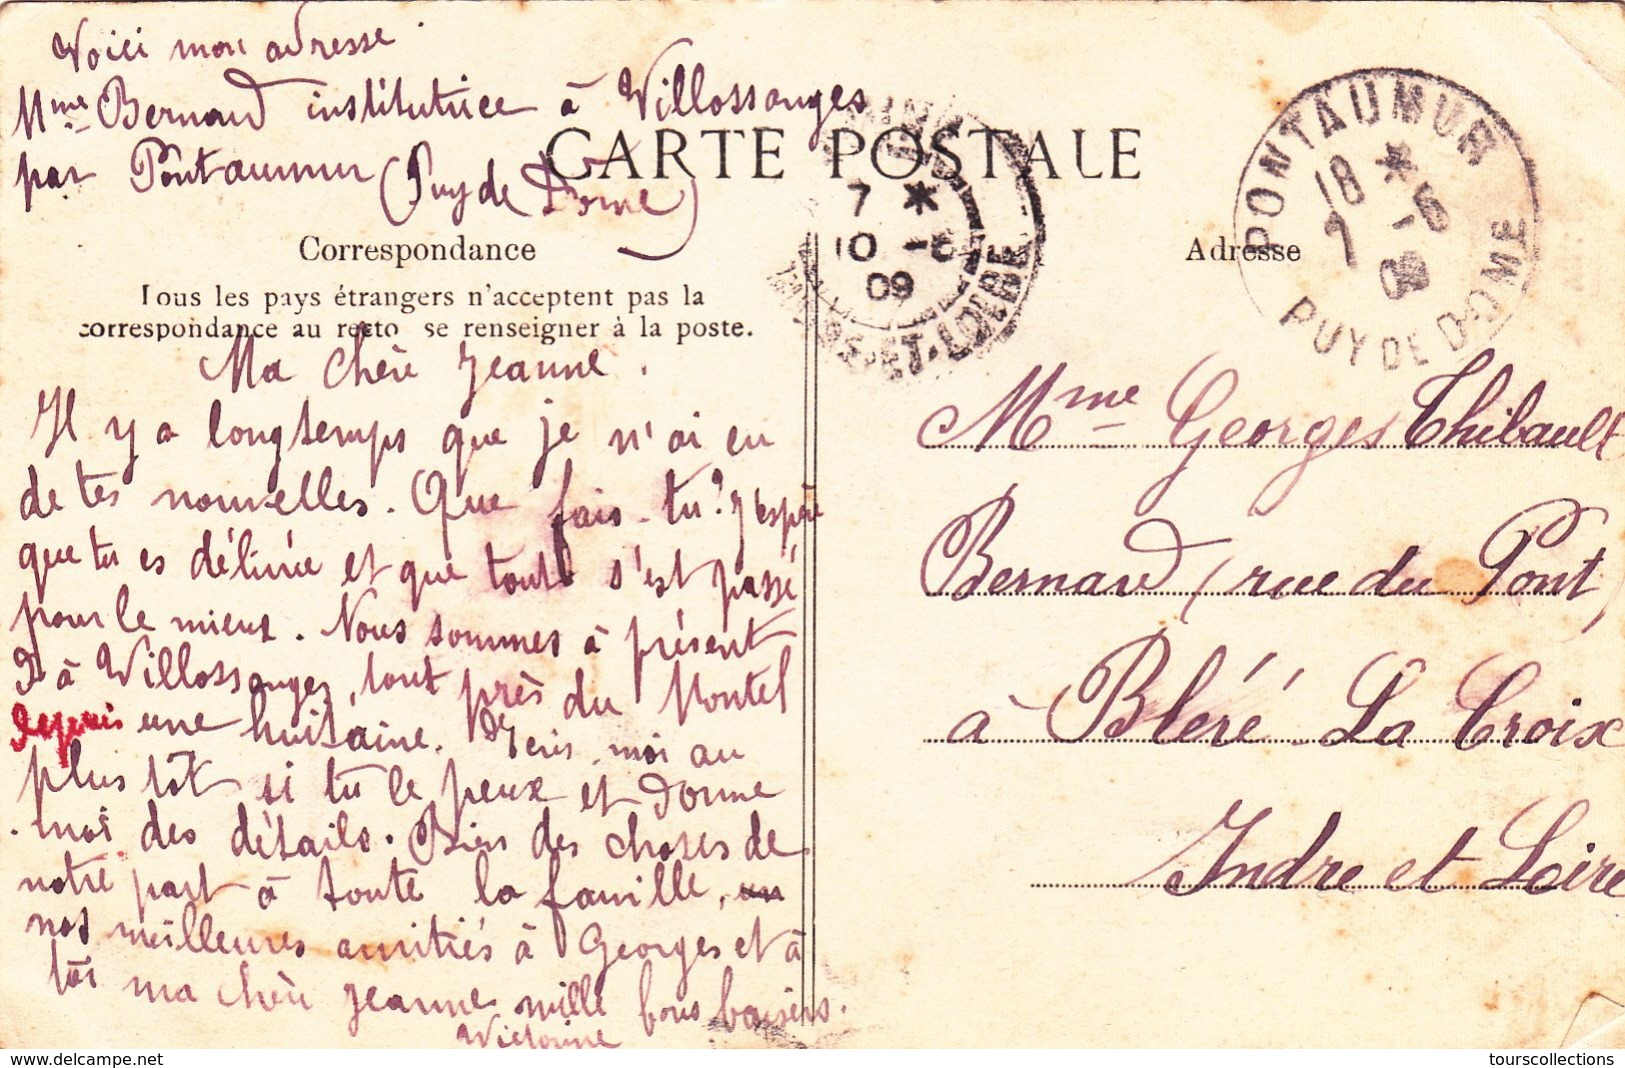 Voici mon adresse
Mme Bernard institutrice à Villossanges
par Pontaumur (Puy de Dôme)
CARTE POSTALE
Correspondance
Tous les pays étrangers n'acceptent pas la
correspondance au recto se renseigner à la poste.
Ma chère Jeanne.
Il y a longtemps que je n'ai eu
de tes nouvelles. Que fais-tu? J'espère
que tu es délivrée et que tout s'est passé
pour le mieux. Nous sommes à présent
à Villossanges, tout près du Montel
depuis une huitaine. Ecris-moi au
plus tôt si tu le peux et donne
-moi des détails. Bien des choses de
notre part à toute la famille,
nos meilleures amitiés à Georges et à
toi ma chère Jeanne mille bons baisers.
Victorine
7 *
10 -6
09
INDRE-ET-LOIRE
Adresse
PONTAUMUR
18 *
7 -6
09
PUY DE DOME
Mme Georges Thibault
Bernard (rue du Pont)
à Bléré-La Croix
Indre et Loire
delcampe.net
tourscollections